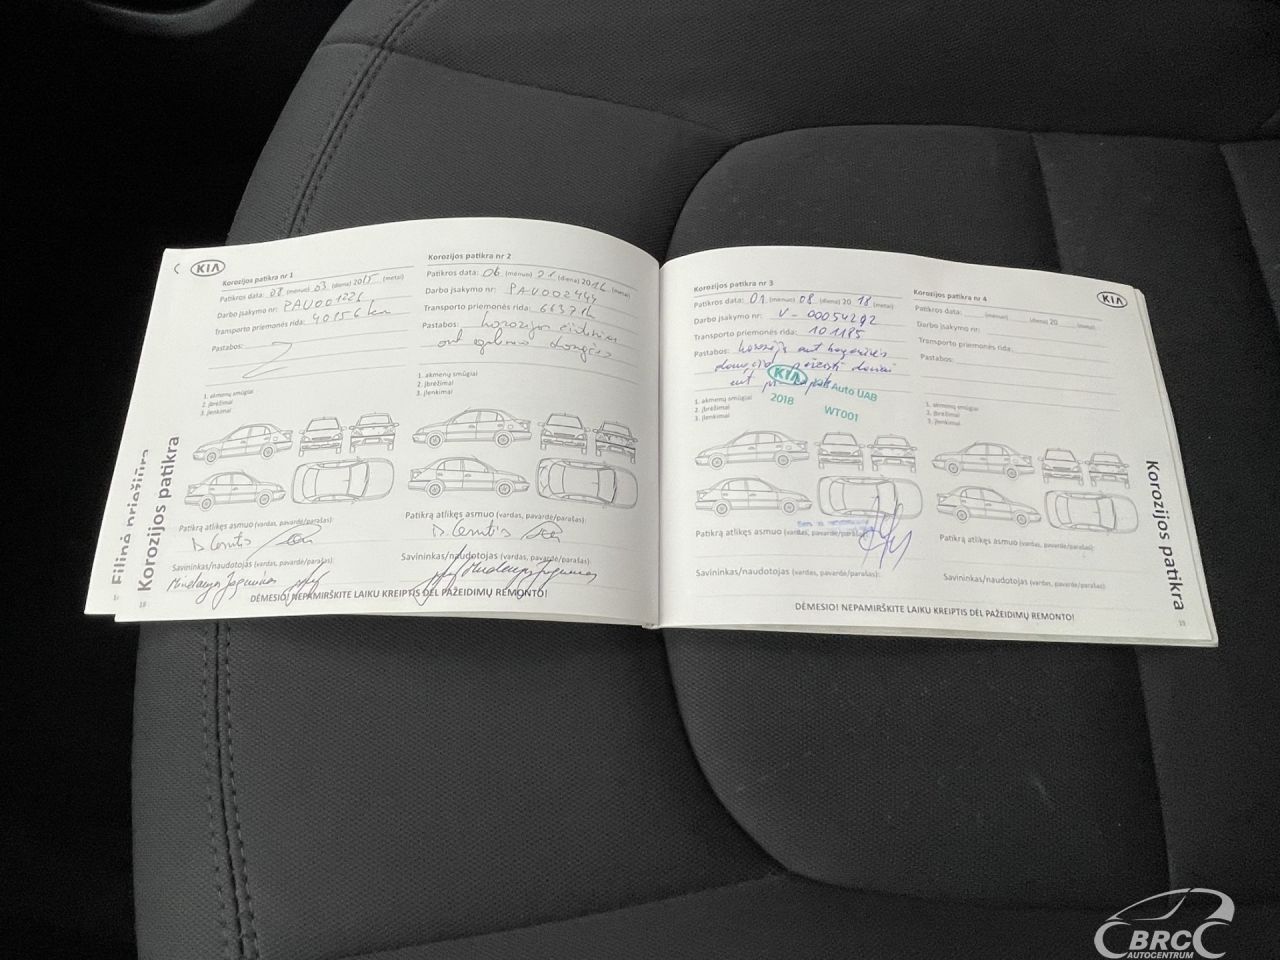 KIA
Korozijos patikra nr 1
Patikros data: 08 (mėnuo) 03 (diena) 2015 (metai)
Darbo įsakymo nr: PAV001226
Transporto priemonės rida: 40156 km
Pastabos:
1. akmenų smūgiai
2. įbrėžimai
3. įlenkimai
Patikrą atlikęs asmuo (vardas, pavardė/parašas):
Savininkas/naudotojas (vardas, pavardė/parašas):
Korozijos patikra nr 2
Patikros data: 06 (mėnuo) 21 (diena) 2016 (metai)
Darbo įsakymo nr: PAV002444
Transporto priemonės rida:
Pastabos: korozijos
ant
1. akmenų smūgiai
2. įbrėžimai
3. įlenkimai
Patikrą atlikęs asmuo (vardas, pavardė/parašas):
Savininkas/naudotojas (vardas, pavardė/parašas):
DĖMESIO! NEPAMIRŠKITE LAIKU KREIPTIS DĖL PAŽEIDIMŲ REMONTO!
Korozijos patikra
18
Korozijos patikra nr 3
Patikros data: 01 (mėnuo) 08 (diena) 2018 (metai)
Darbo įsakymo nr: V-00054292
Transporto priemonės rida: 101185
Pastabos: korozija ant
ant
KIA Auto UAB
2018 WT001
1. akmenų smūgiai
2. įbrėžimai
3. įlenkimai
Patikrą atlikęs asmuo (vardas, pavardė/parašas):
Savininkas/naudotojas (vardas, pavardė/parašas):
KIA
Korozijos patikra nr 4
Patikros data: (mėnuo) (diena) 20 (metai)
Darbo įsakymo nr:
Transporto priemonės rida:
Pastabos:
1. akmenų smūgiai
2. įbrėžimai
3. įlenkimai
Patikrą atlikęs asmuo (vardas, pavardė/parašas):
Savininkas/naudotojas (vardas, pavardė/parašas):
DĖMESIO! NEPAMIRŠKITE LAIKU KREIPTIS DĖL PAŽEIDIMŲ REMONTO!
Korozijos patikra
19
BRC
AUTOCENTRUM